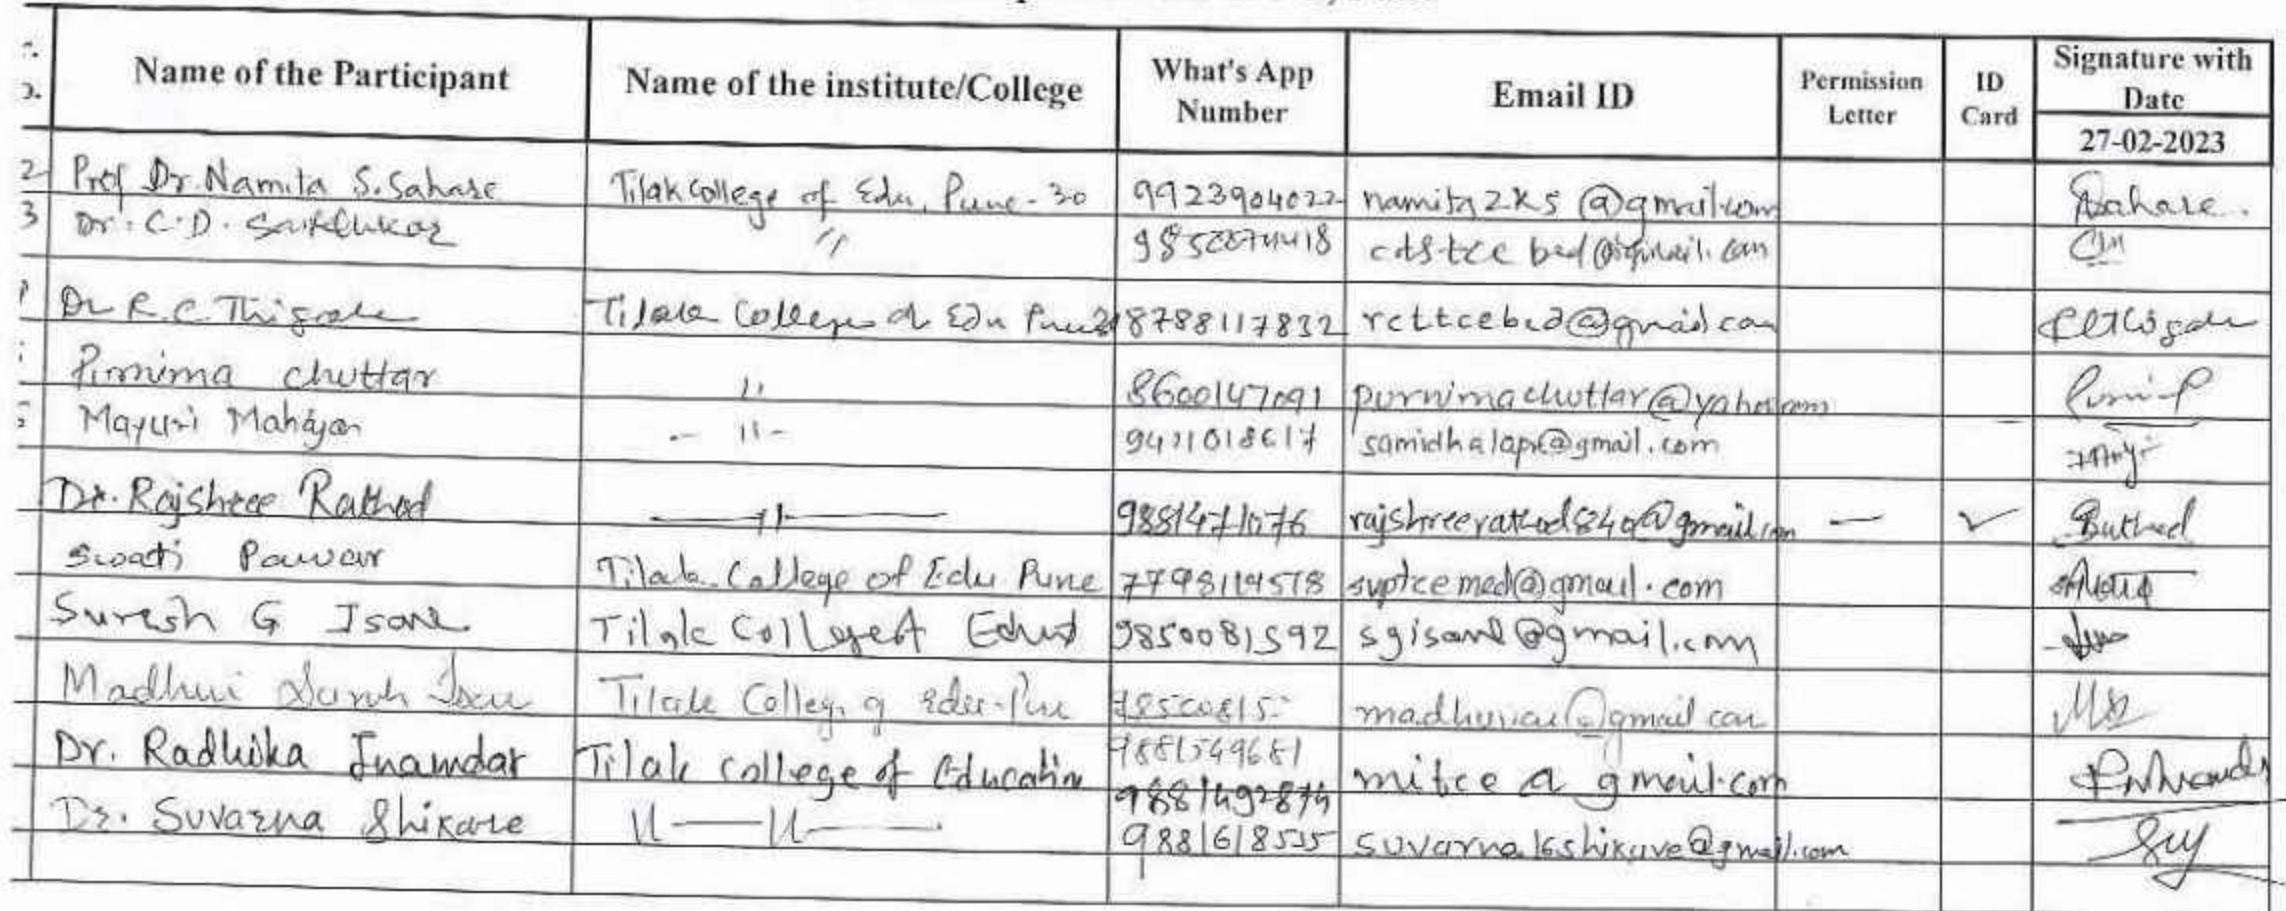 Name of the Participant Name of the institute/College What's App Number Email ID Permission Letter ID Card Signature with Date
27-02-2023
2 Prof Dr. Namita S. Sahare Tilak College of Edu, Pune-30 9923904022 namita2ks@gmail.com Sahare.
3 Dr. C.D. 〃 cdstcebed@gmail.com
Dr R.C. Thigale Tilak College of Edu Pune 8788117832 rcttcebed@gmail.com
Purnima Chuttar 〃 8600147091 purnimachuttar@yahoo.com
Mayuri Mahajan - 〃 - samidhalap@gmail.com
Dr. Rajshree Rathod — 〃 — 9881471076 rajshreerathod840@gmail.com — ✓ Rathod
Swati Pawar Tilak College of Edu Pune suptcemed@gmail.com
Suresh G Isave Tilak College of 9850081592 sgisave@gmail.com
Madhuri Isave Tilak College of Edu-Pune
9881549681
Dr. Radhika Inamdar Tilak College of Education 9881492874 mitce a gmail.com
Dr. Suvarna Shikare 〃 — 〃 — 9881618535 suvarna16shikare@gmail.com